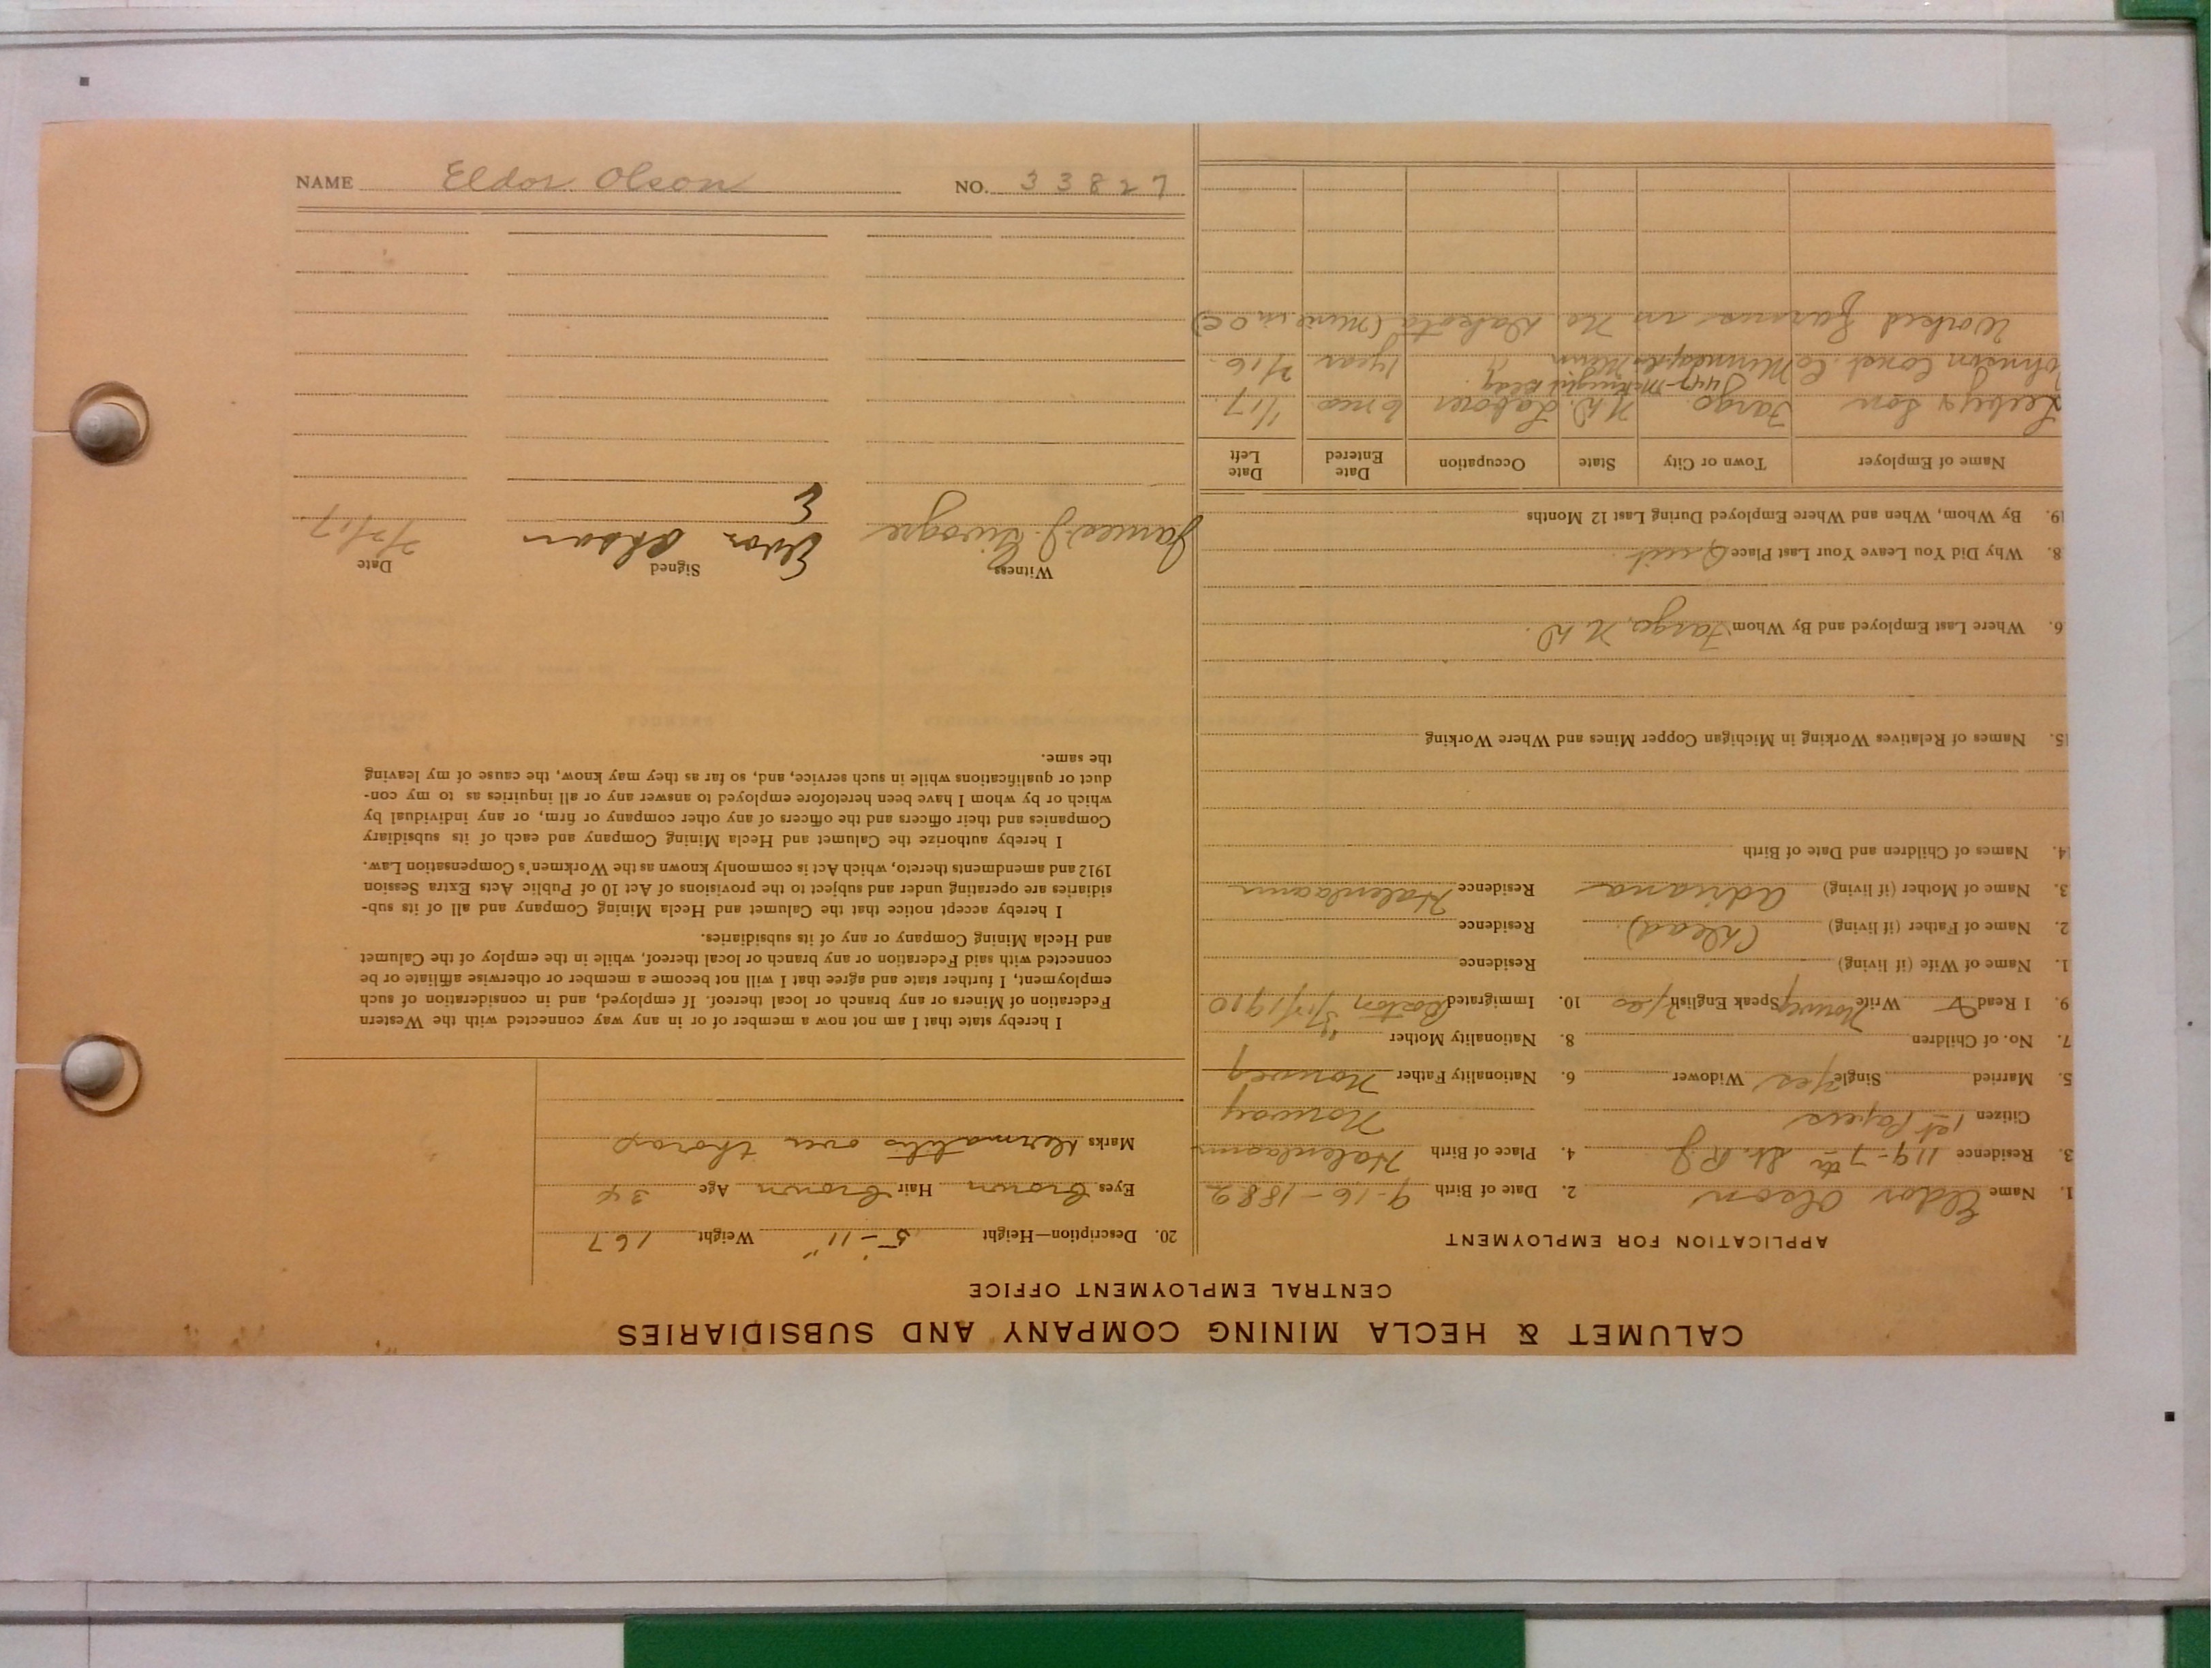 NAME Eldor Olson NO. 33827
CALUMET & HECLA MINING COMPANY AND SUBSIDIARIES
CENTRAL EMPLOYMENT OFFICE
APPLICATION FOR EMPLOYMENT
1. Name Eldor Olson 2. Date of Birth 9-16-1882
3. Residence 119-7th St. R.J. 4. Place of Birth
Citizen 1st Papers Norway
5. Married Single Yes Widower 6. Nationality Father Norweg
7. No. of Children 8. Nationality Mother "
9. I Read Write Norweg Speak English Yes 10. Immigrated Boston 3/17/1910
1. Name of Wife (if living) Residence
2. Name of Father (if living) (Dead) Residence
3. Name of Mother (if living) Adriana Residence
4. Names of Children and Date of Birth
15. Names of Relatives Working in Michigan Copper Mines and Where Working
6. Where Last Employed and By Whom Fargo, N.D.
8. Why Did You Leave Your Last Place Quit
19. By Whom, When and Where Employed During Last 12 Months
Name of Employer Town or City State Occupation Date Entered Date Left
& Son Fargo N.D. Laborer 6 mos 1/17.
McKnight Bldg.
Johnson Const. Co Minneapolis Minn " 1 year 2/16.
Worked farms in No Dakota (mine in O C)
20. Description—Height 5'-11" Weight 167
Eyes Brown Hair Brown Age 34
Marks Dermatitis over thorax
I hereby state that I am not now a member of or in any way connected with the Western
Federation of Miners or any branch or local thereof. If employed, and in consideration of such
employment, I further state and agree that I will not become a member or otherwise affiliate or be
connected with said Federation or any branch or local thereof, while in the employ of the Calumet
and Hecla Mining Company or any of its subsidiaries.
I hereby accept notice that the Calumet and Hecla Mining Company and all of its sub-
sidiaries are operating under and subject to the provisions of Act 10 of Public Acts Extra Session
1912 and amendments thereto, which Act is commonly known as the Workmen's Compensation Law.
I hereby authorize the Calumet and Hecla Mining Company and each of its subsidiary
Companies and their officers and the officers of any other company or firm, or any individual by
which or by whom I have been heretofore employed to answer any or all inquiries as to my con-
duct or qualifications while in such service, and, so far as they may know, the cause of my leaving
the same.
Witness Signed Date
James J. Eldor Olsan 2/2/17
E